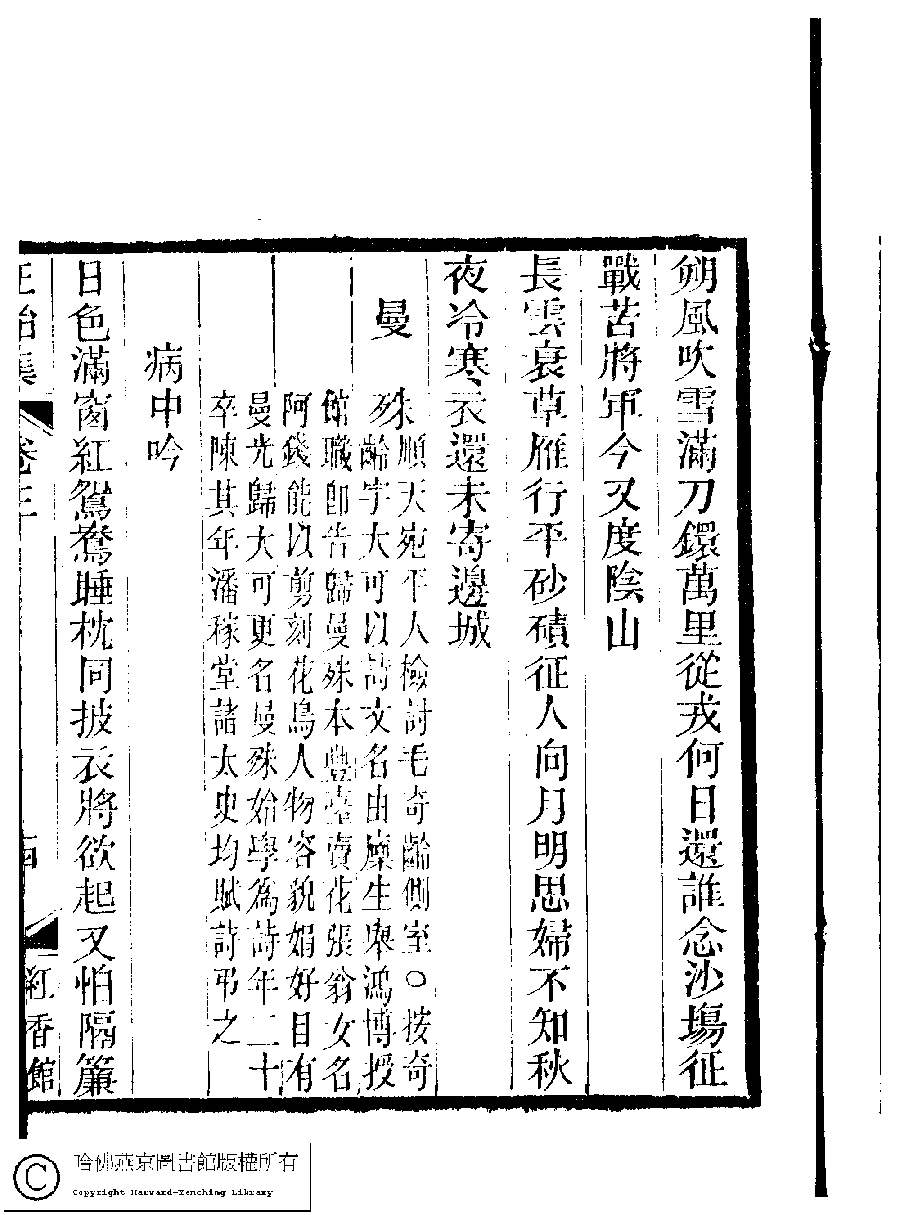 朔風吹雪滿刀鐶萬里從戎何日還誰念沙塲征
戰苦將軍今又度陰山
長雲衰草雁行平砂磧征人向月明思婦不知秋
夜冷寒衣還未寄邊城
曼殊
順天宛平人檢討毛奇齡側室○按奇
齡字大可以詩文名由廩生舉鴻博授
館職卽告歸曼殊本豐臺賣花張翁女名
阿錢能以剪刻花鳥人物容貌娟好目有
曼光歸大可更名曼殊始學爲詩年二十
卒陳其年潘稼堂諸太史均賦詩弔之
病中吟
日色滿窗紅鴛鴦睡枕同披衣將欲起又怕隔簾
正始集
卷三
紅香館
哈佛燕京圖書館版權所有
Copyright Harvard-Yenching Library